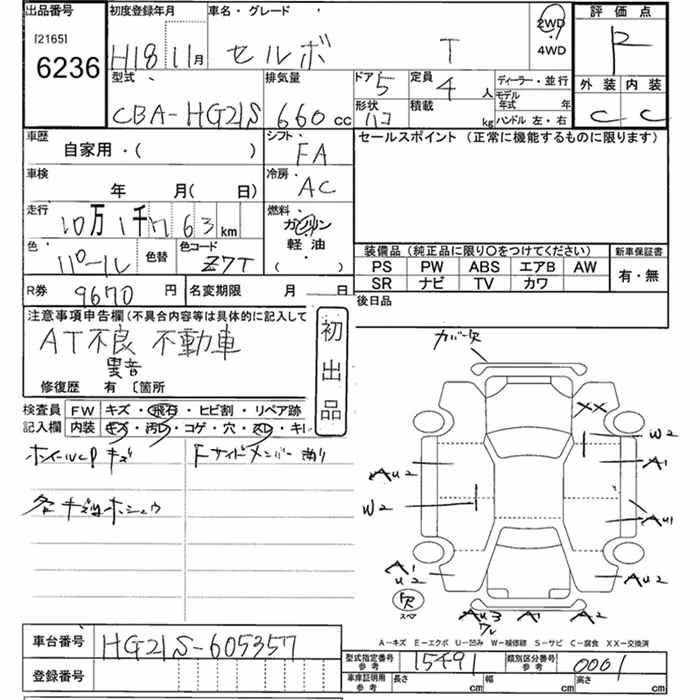 出品番号
[2165]
6236
初度登録年月
H18 11月
車名・グレード
セルボ T
2WD
4WD
評価点
R
外装 内装
C C
型式
CBA-HG21S
排気量
660 cc
ドア 5
定員 4 人
形状 ハコ
積載 kg
ディーラー・並行
モデル年式 年
ハンドル 左・右
車歴
自家用・( )
シフト
FA
セールスポイント (正常に機能するものに限ります)
車検
年 月( 日)
冷房
AC
走行
10万1千763km
燃料
ガソリン
軽油
( )
色
パール
色替
色コード
Z7T
装備品(純正品に限り○をつけてください)
新車保証書
PS PW ABS エアB AW
SR ナビ TV カワ
有・無
R券 9670 円
名変期限 月 日
後日品
注意事項申告欄(不具合内容等は具体的に記入して
AT不良 不動車
異音
修復歴 有 〔箇所
初出品
検査員 FW キズ・飛石・ヒビ割・リペア跡
記入欄 内装 キズ・汚レ・コゲ・穴・スレ・キレ
ホイールCPキズ
Fサイドメンバー曲り
各キズ凹ホシュウ
カバー欠
XX
W2
AU2
A1
W2
AU1
A1
U2
AU2
FR
スペア
AU3
ワレ
A1
A2
A-キズ E-エクボ U-凹み W-補修跡 S-サビ C-腐食 XX-交換済
車台番号 HG21S-605357
型式指定番号 参考 15491
類別区分番号 参考 0001
登録番号
車庫証明用 参考
長さ cm
幅 cm
高さ cm